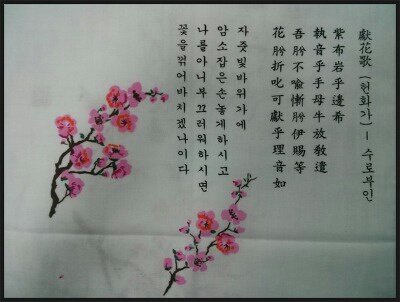 獻花歌 (헌화가) - 수로부인
紫布岩乎邊希
執音乎手母牛放敎遣
吾肹不喩慚肹伊賜等
花肹折叱可獻乎理音如
자줏빛바위가에
암소잡은손놓게하시고
나를아니부끄러워하시면
꽃을꺾어바치겠나이다